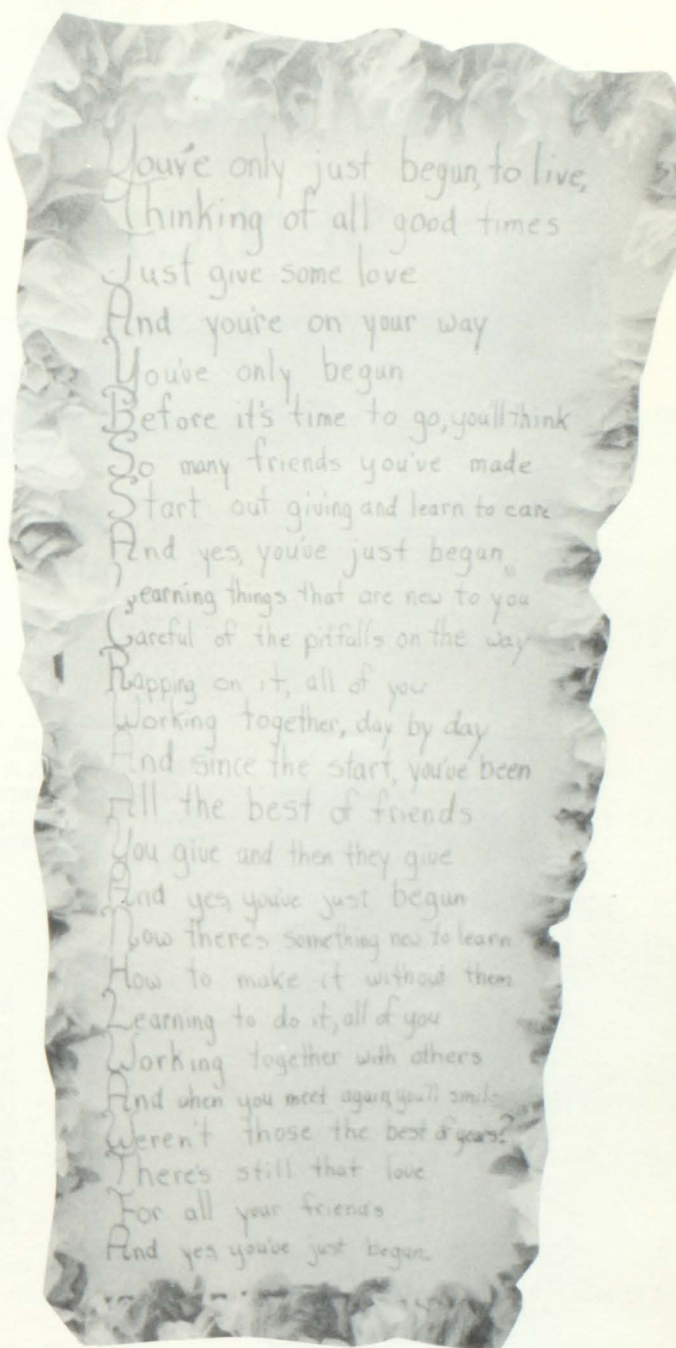 You've only just begun, to live,
Thinking of all good times
Just give some love
And you're on your way
You've only begun
Before it's time to go, you'll think
So many friends you've made
Start out giving and learn to care
And yes, you've just begun.
Learning things that are new to you
Careful of the pitfalls on the way
Rapping on it, all of you
Working together, day by day
And since the start, you've been
All the best of friends
You give and then they give
And yes, you've just begun
Now there's something new to learn
How to make it without them
Learning to do it, all of you
Working together with others
And when you meet again, you'll smile
Weren't those the best of years?
There's still that love
For all your friends
And yes, you've just begun.